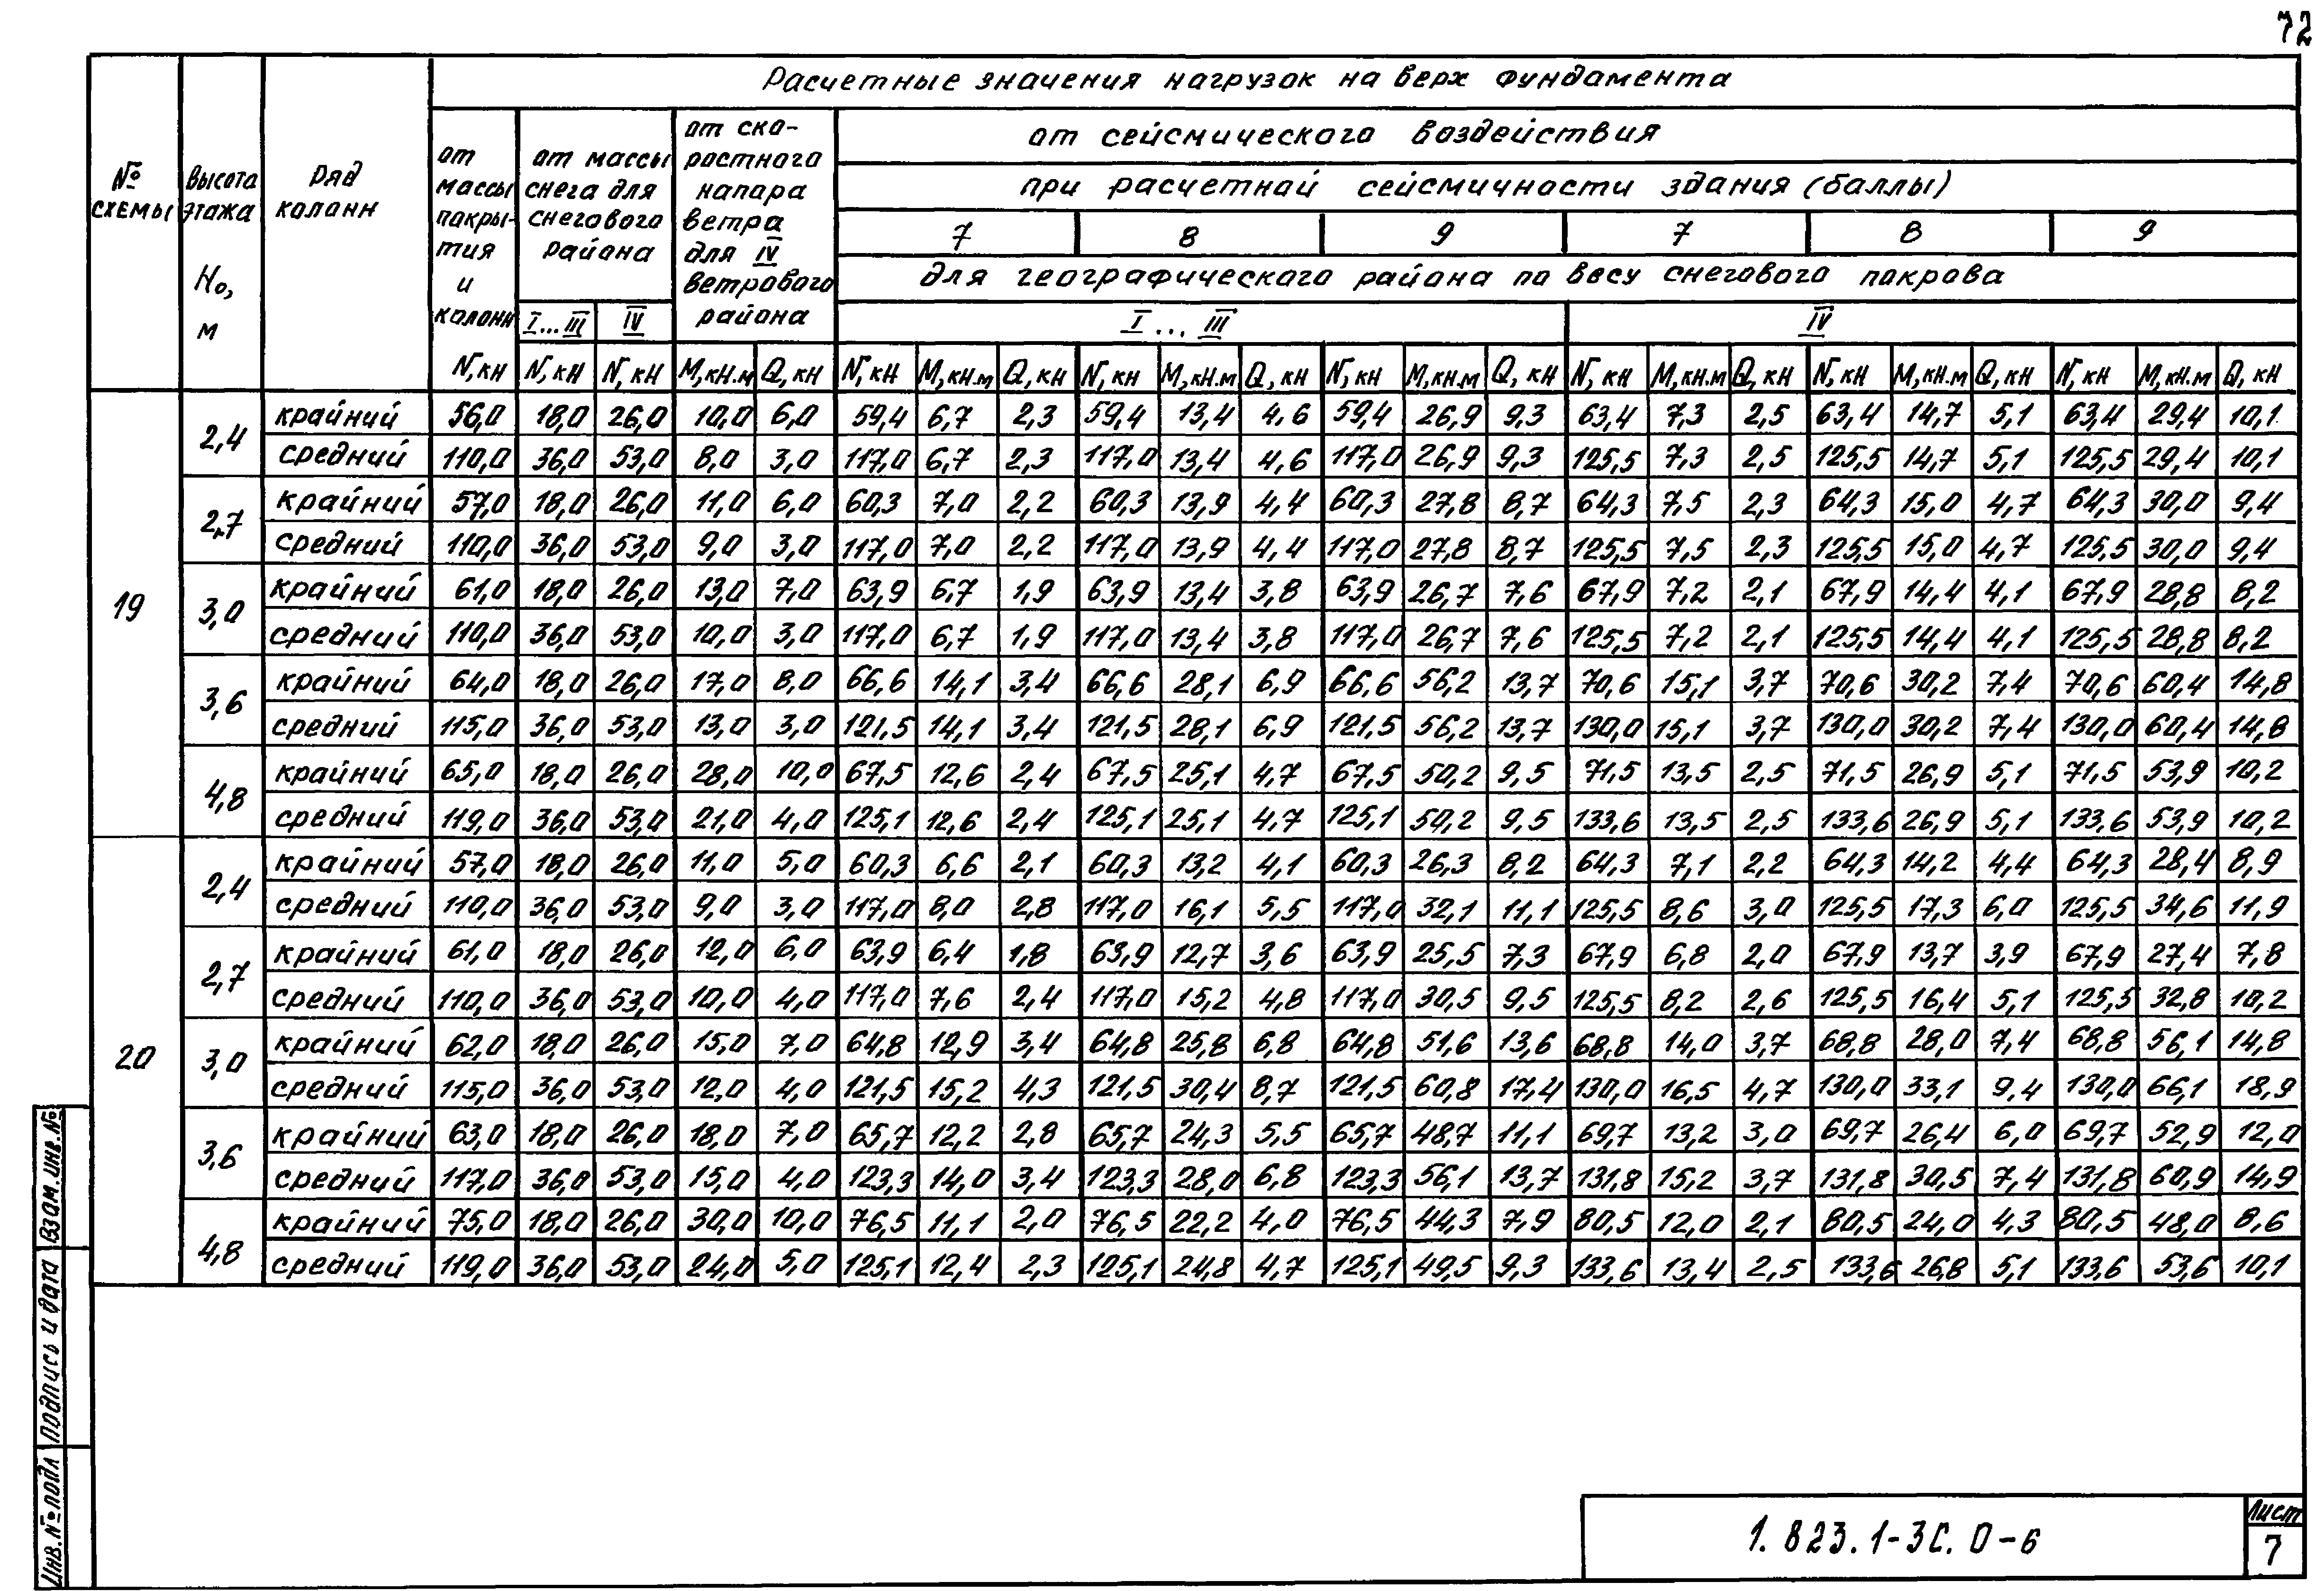 72
Расчетные значения нагрузок на верх фундамента
№ схемы
Высота этажа Но, м
Ряд колонн
от массы покры- тия и колонн
от массы снега для снегового района
от ско- ростного напора ветра для IV ветрового района
от сейсмического воздействия
при расчетной сейсмичности здания (баллы)
7 8 9 7 8 9
для географического района по весу снегового покрова
I...III IV I...III IV
N,кН N,кН N,кН М,кН.м Q,кН N,кН М,кН.м Q,кН N,кН М,кН.м Q,кН N,кН М,кН.м Q,кН N,кН М,кН.м Q,кН N,кН М,кН.м Q,кН N,кН М,кН.м Q,кН
19
2,4 крайний 56,0 18,0 26,0 10,0 6,0 59,4 6,7 2,3 59,4 13,4 4,6 59,4 26,9 9,3 63,4 7,3 2,5 63,4 14,7 5,1 63,4 29,4 10,1
средний 110,0 36,0 53,0 8,0 3,0 117,0 6,7 2,3 117,0 13,4 4,6 117,0 26,9 9,3 125,5 7,3 2,5 125,5 14,7 5,1 125,5 29,4 10,1
2,7 крайний 57,0 18,0 26,0 11,0 6,0 60,3 7,0 2,2 60,3 13,9 4,4 60,3 27,8 8,7 64,3 7,5 2,3 64,3 15,0 4,7 64,3 30,0 9,4
средний 110,0 36,0 53,0 9,0 3,0 117,0 7,0 2,2 117,0 13,9 4,4 117,0 27,8 8,7 125,5 7,5 2,3 125,5 15,0 4,7 125,5 30,0 9,4
3,0 крайний 61,0 18,0 26,0 13,0 7,0 63,9 6,7 1,9 63,9 13,4 3,8 63,9 26,7 7,6 67,9 7,2 2,1 67,9 14,4 4,1 67,9 28,8 8,2
средний 110,0 36,0 53,0 10,0 3,0 117,0 6,7 1,9 117,0 13,4 3,8 117,0 26,7 7,6 125,5 7,2 2,1 125,5 14,4 4,1 125,5 28,8 8,2
3,6 крайний 64,0 18,0 26,0 17,0 8,0 66,6 14,1 3,4 66,6 28,1 6,9 66,6 56,2 13,7 70,6 15,1 3,7 70,6 30,2 7,4 70,6 60,4 14,8
средний 115,0 36,0 53,0 13,0 3,0 121,5 14,1 3,4 121,5 28,1 6,9 121,5 56,2 13,7 130,0 15,1 3,7 130,0 30,2 7,4 130,0 60,4 14,8
4,8 крайний 65,0 18,0 26,0 28,0 10,0 67,5 12,6 2,4 67,5 25,1 4,7 67,5 50,2 9,5 71,5 13,5 2,5 71,5 26,9 5,1 71,5 53,9 10,2
средний 119,0 36,0 53,0 21,0 4,0 125,1 12,6 2,4 125,1 25,1 4,7 125,1 50,2 9,5 133,6 13,5 2,5 133,6 26,9 5,1 133,6 53,9 10,2
20
2,4 крайний 57,0 18,0 26,0 11,0 5,0 60,3 6,6 2,1 60,3 13,2 4,1 60,3 26,3 8,2 64,3 7,1 2,2 64,3 14,2 4,4 64,3 28,4 8,9
средний 110,0 36,0 53,0 9,0 3,0 117,0 8,0 2,8 117,0 16,1 5,5 117,0 32,1 11,1 125,5 8,6 3,0 125,5 17,3 6,0 125,5 34,6 11,9
2,7 крайний 61,0 18,0 26,0 12,0 6,0 63,9 6,4 1,8 63,9 12,7 3,6 63,9 25,5 7,3 67,9 6,8 2,0 67,9 13,7 3,9 67,9 27,4 7,8
средний 110,0 36,0 53,0 10,0 4,0 117,0 7,6 2,4 117,0 15,2 4,8 117,0 30,5 9,5 125,5 8,2 2,6 125,5 16,4 5,1 125,5 32,8 10,2
3,0 крайний 62,0 18,0 26,0 15,0 7,0 64,8 12,9 3,4 64,8 25,8 6,8 64,8 51,6 13,6 68,8 14,0 3,7 68,8 28,0 7,4 68,8 56,1 14,8
средний 115,0 36,0 53,0 12,0 4,0 121,5 15,2 4,3 121,5 30,4 8,7 121,5 60,8 17,4 130,0 16,5 4,7 130,0 33,1 9,4 130,0 66,1 18,9
3,6 крайний 63,0 18,0 26,0 18,0 7,0 65,7 12,2 2,8 65,7 24,3 5,5 65,7 48,7 11,1 69,7 13,2 3,0 69,7 26,4 6,0 69,7 52,9 12,0
средний 117,0 36,0 53,0 15,0 4,0 123,3 14,0 3,4 123,3 28,0 6,8 123,3 56,1 13,7 131,8 15,2 3,7 131,8 30,5 7,4 131,8 60,9 14,9
4,8 крайний 75,0 18,0 26,0 30,0 10,0 76,5 11,1 2,0 76,5 22,2 4,0 76,5 44,3 7,9 80,5 12,0 2,1 80,5 24,0 4,3 80,5 48,0 8,6
средний 119,0 36,0 53,0 24,0 5,0 125,1 12,4 2,3 125,1 24,8 4,7 125,1 49,5 9,3 133,6 13,4 2,5 133,6 26,8 5,1 133,6 53,6 10,1
Взам.инв.№
Подпись и дата
Инв.№ подл
1.823.1-3С.0-6
Лист
7